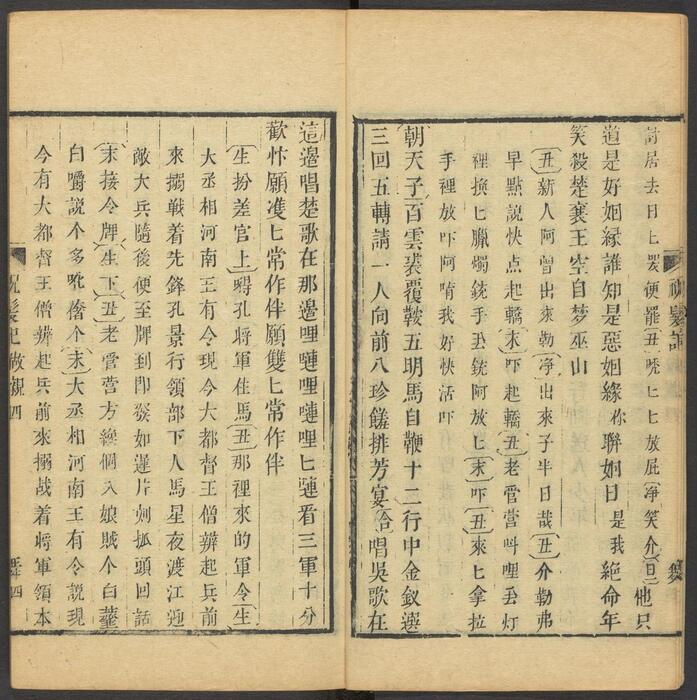 討居去日匕罢便罷丑唬匕匕放屁淨笑介旦他只
道是好姻緣誰知是惡姻緣你聯姻日是我絕命年
笑殺楚襄王空自梦巫山
丑新人阿曾出來勒淨出來子半日哉丑介勒弗
早點說快点起轎末吓起轎丑老雷當呌哩丢灯
裡換匕臘燭銃手丢銃阿放匕末吓丑來匕拿拉
手裡放吓阿唷我好快活吓
朝天子百雲裘覆鞍五明馬自鞭十二行中金釵選
三回五轉請一人向前八珍饈排芳宴合唱吳歌在
這邊唱楚歌在那邊哩嗹哩嗹哩匕嗹看三軍十分
歡忭願准匕常作伴願雙匕常作伴
生扮差官上㖃孔將軍住馬丑那裡來的軍令生
大丞相河南王有令現今大都督王僧辨起兵前
來搦戦着先鋒孔景行領部下人馬星夜渡江迎
敵大兵隨後便至牌到即發如違片刻抓頭回話
末接令牌生下丑老雷當方纔個入娘賊个白
白嚼說个多吪僭个末大丞相河南王有令說現
今有大都督王僧辨起兵前來搦战着將軍領本
祝髮記
祝髮記 做親 四